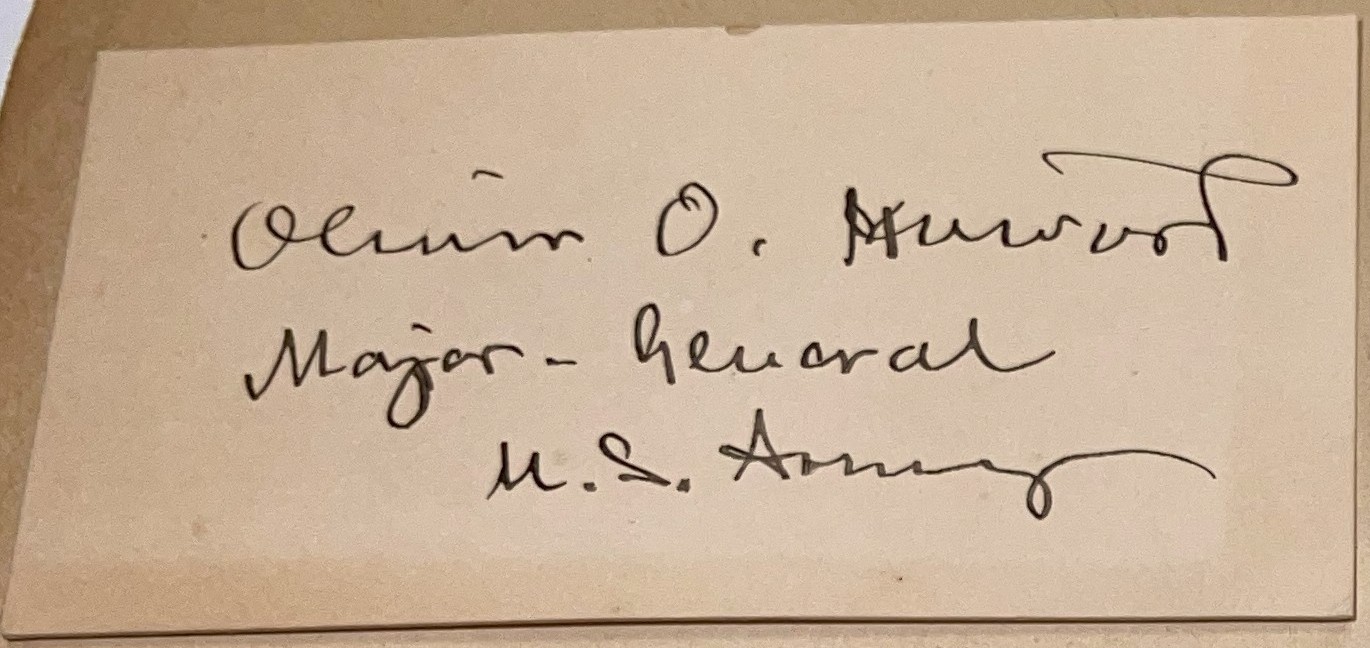 Oliver O. Howard
Major-General
U.S. Army